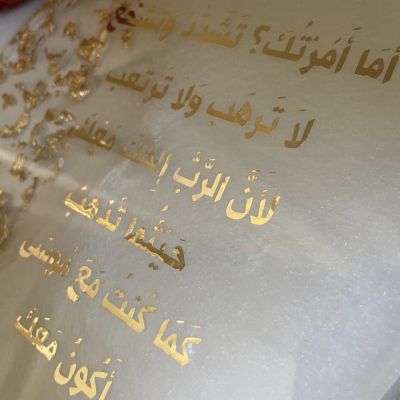 أَمَا أَمَرْتُكَ؟ تَشَدَّدْ وَتَشَجَّعْ
لاَ تَرْهَبْ وَلاَ تَرْتَعِبْ
لأَنَّ الرَّبَّ إِلهَكَ مَعَكَ
حَيْثُمَا تَذْهَبُ
كَمَا كُنْتُ مَعَ مُوسَى
أَكُونُ مَعَكَ